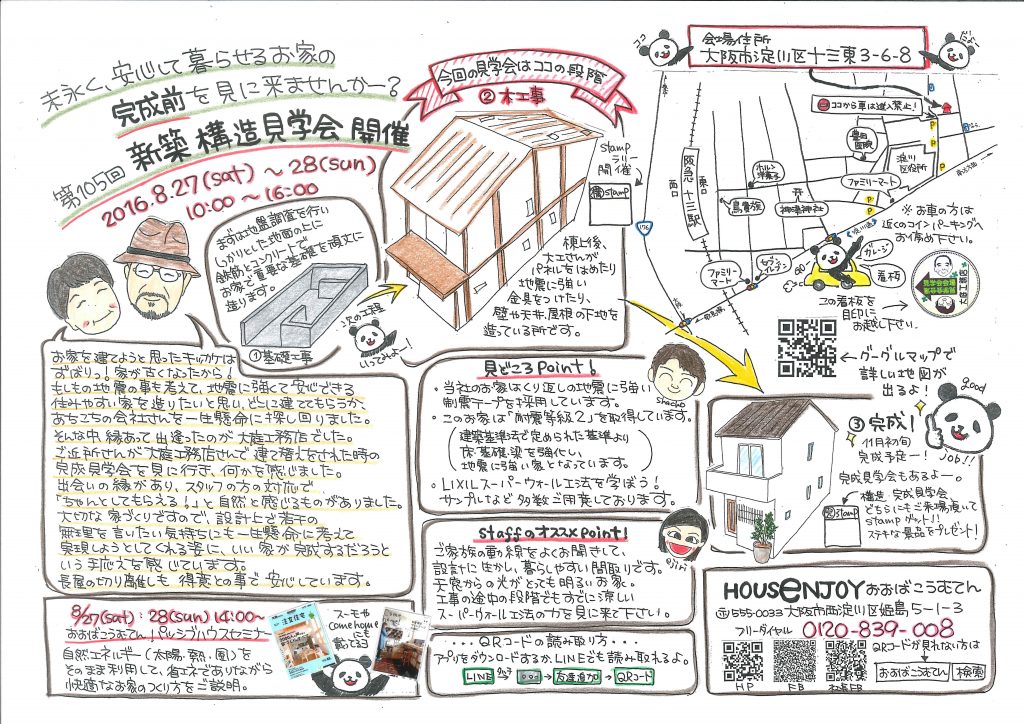 末永く、安心して暮らせるお家の
完成前を見に来ませんかー?
第105回 新築構造見学会 開催
2016.8.27(sat) 〜 28(sun)
10:00 〜 16:00
まずは地盤調査を行い
しっかりとした地面の上に
鉄筋とコンクリートで
お家で1番重要な基礎を頑丈に
造ります。
①基礎工事
次の工程
いってみよー!
今回の見学会はココの段階
②木工事
stamp
ラリー
開催
構stamp
棟上後、
大工さんが
パネルをはめたり
地震に強い
金具をつけたり、
壁や天井、屋根の下地を
造っている所です。
ココ
だよー
会場住所
大阪市淀川区十三東3-6-8
ココから車は進入禁止!
豊田
医院
淀川
区役所
ホルン
洋菓子
ファミリーマート
鳥貴族
神津神社
阪急 十三駅
西口
東口
176
ファミリー
マート
セブン
イレブン
ガレージ
看板
P
P
P
P
※お車の方は
近くのコインパーキングへ
お停め下さい。
この看板を
目印に
お越し下さい。
大庭工務店
←グーグルマップで
詳しい地図が
出るよ!
お家を建てようと思ったキッカケは
ずばりっ!家が古くなったから!
もしもの地震の事も考えて、地震に強くて安心できる
住みやすい家を造りたいと思い、どこに建ててもらうか
あちこちの会社さんを一生懸命に探し回りました。
そんな中、縁あって出逢ったのが大庭工務店でした。
ご近所さんが大庭工務店さんで建て替えをされた時の
完成見学会を見に行き、何かを感じました。
出会いの縁があり、スタッフの方の対応で
「ちゃんとしてもらえる。」と自然と感じるものがありました。
大切な家づくりですので、設計上で若干の
無理を言いたい気持ちにも一生懸命に考えて
実現しようとしてくれる姿に、いい家が完成するだろうと
いう手応えを感じています。
長屋の切り離しも得意との事で安心しています。
見どころPoint!
・当社のお家はくり返しの地震に強い
制震テープを採用しています。
・このお家は「耐震等級2」を取得しています。
(建築基準法で定められた基準より
床・基礎・梁を強化し、
地震に強い家となっています。)
・LIXILスーパーウォール工法を学ぼう!
サンプルなど多数ご用意しております。
shacho
staffのオススメpoint!
ご家族の事の線をよくお聞きして、
設計に生かし、暮らしやすい間取りです。
天窓からの光がとっても明るいお家。
工事の途中の段階でもすでに涼しい
スーパーウォール工法の力を見に来て下さい。
ejiri
③完成!
11月初旬
完成予定ー!
good
JOB!!
完成見学会もあるよー。
構造、完成見学会
どちらにもご来場頂いて
stampゲット!!
ステキな景品をプレゼント!
完stamp
8/27(sat):28(sun) 14:00〜
おおばこうむてん!パッシブハウスセミナー
自然エネルギー(太陽・熱・風)を
そのまま利用して、省エネでありながら
快適なお家のつくり方をご説明。
注文住宅
スーモや
come home
にも
載ってるヨ
・・・QRコードの読み取り方・・・
アプリをダウンロードするか、LINEでも読み取れるよ。
LINE → … → 友達追加 → QRコード
HOUSENJOY おおばこうむてん
〒555-0033 大阪市西淀川区姫島5-1-3
フリーダイヤル 0120-839-008
HP
FB
社長FB
QRコードが見れない方は
おおばこうむてん 検索